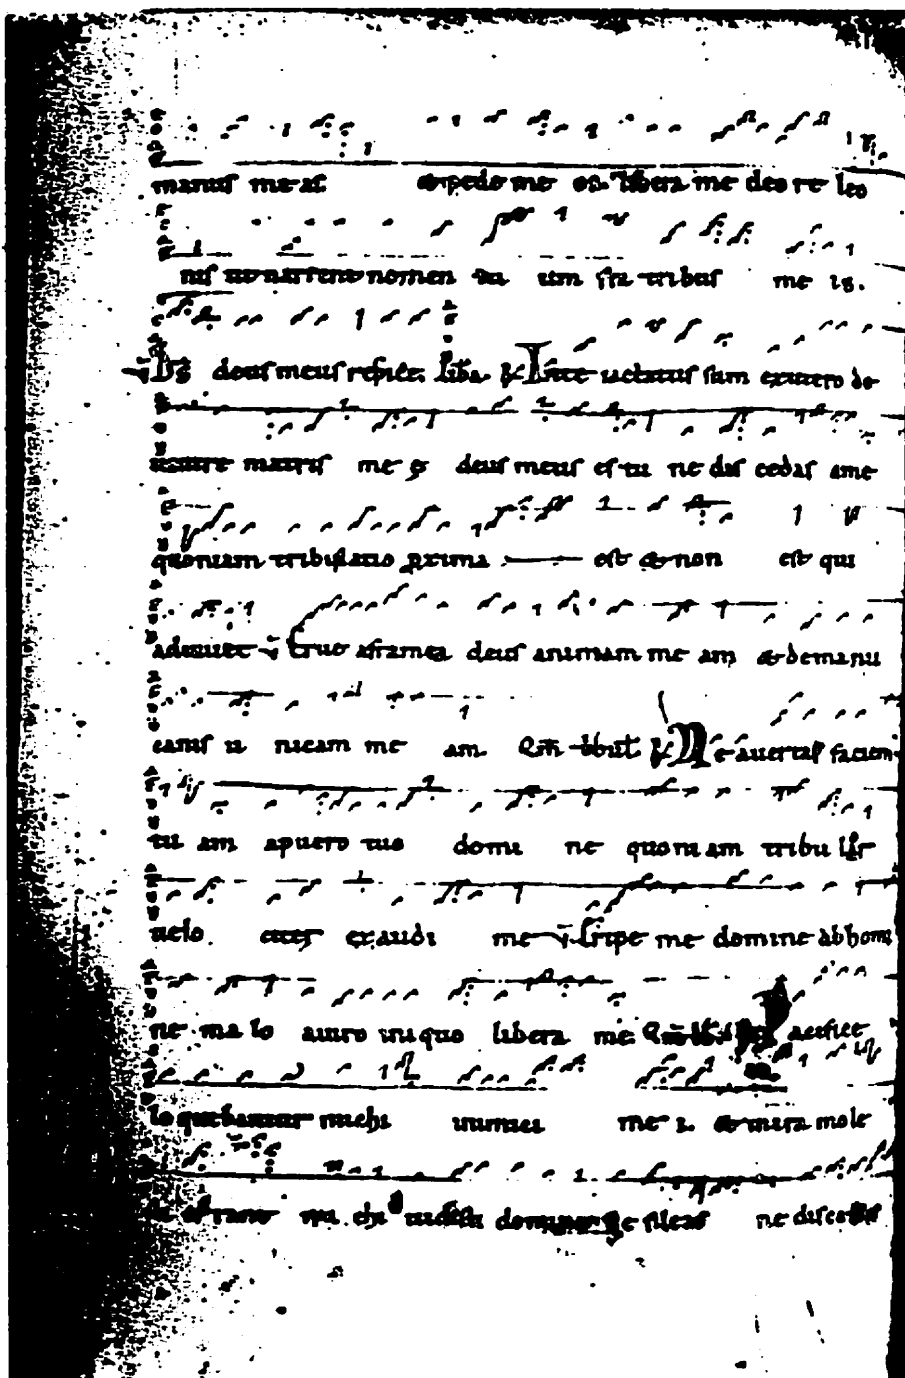 manus meas et pede me os. libera me deo re leo
nis ut narrem nomen tu um fra tribus me is.
deus meus respice. Liba. In te iactatus sum exutero de
uentre matris me deus meus es tu ne dis cedas ame
quoniam tribulatio proxima est et non est qui
adiuuet Erue aframea deus animam me am et demanu
canis u nicam me am. Qm tbul. Ne auertas faciem
tu am apuero tuo domi ne quoniam tribu lor
uelo citer exaudi me Eripe me domine abhomi
ne ma lo auiro iniquo libera me. Qm Pacifice
loquebantur michi inimici me i. et in ira mole
domine Ne sileas ne discedas